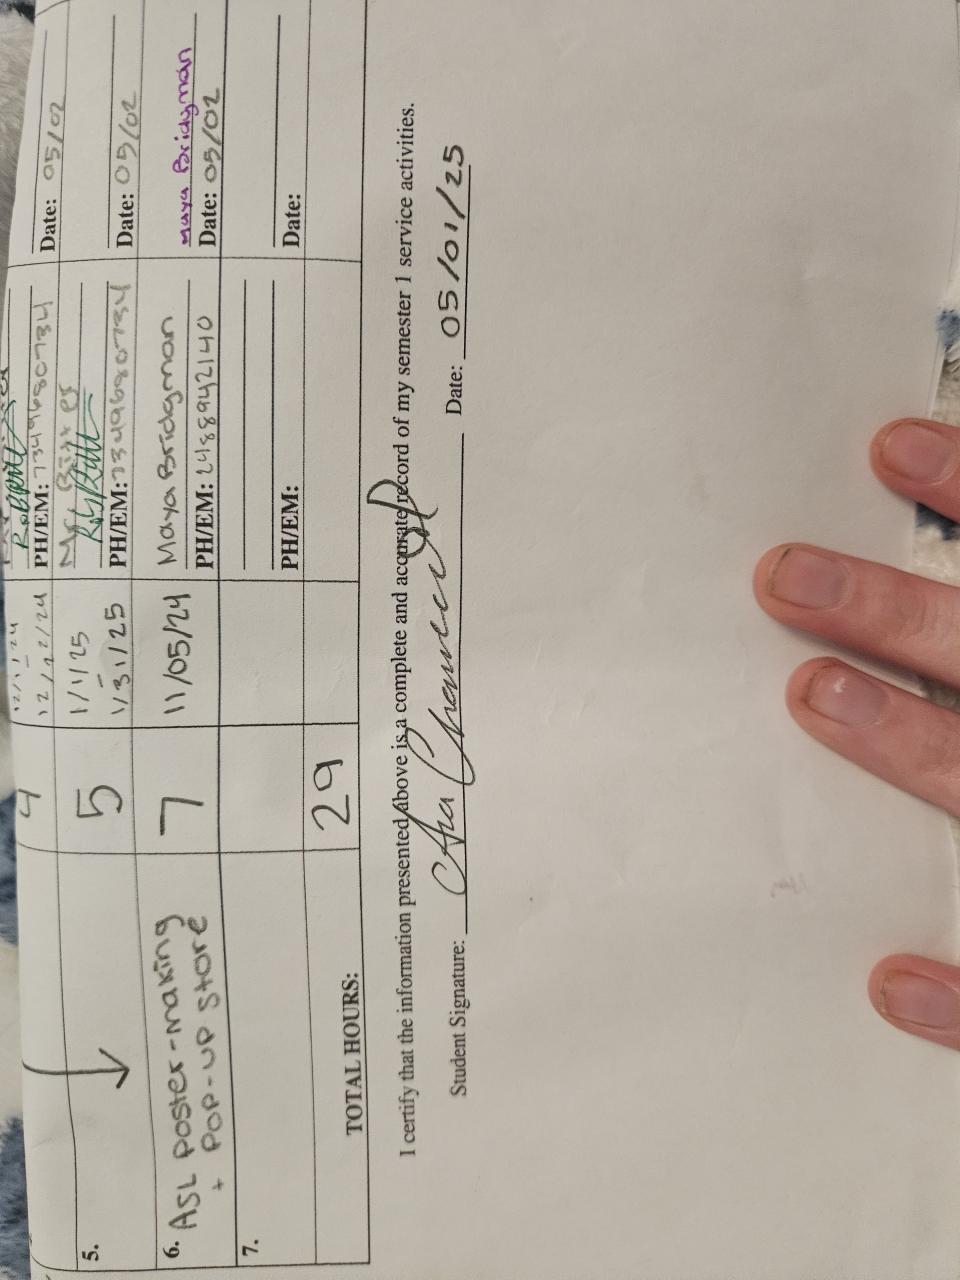 4
12/1/24
-
12/22/24
PH/EM: 7349680734
Date: 05/02
5.
5
1/1/25
-
1/31/25
Mr. Ritter
PH/EM: 7349680734
Date: 05/02
6. ASL poster-making
+ POP-UP store
7
11/05/24
Maya Bridgman
PH/EM: 2488942140
Maya Bridgman
Date: 05/02
7.
PH/EM:
Date:
TOTAL HOURS:
29
I certify that the information presented above is a complete and accurate record of my semester 1 service activities.
Student Signature:
Date: 05/01/25